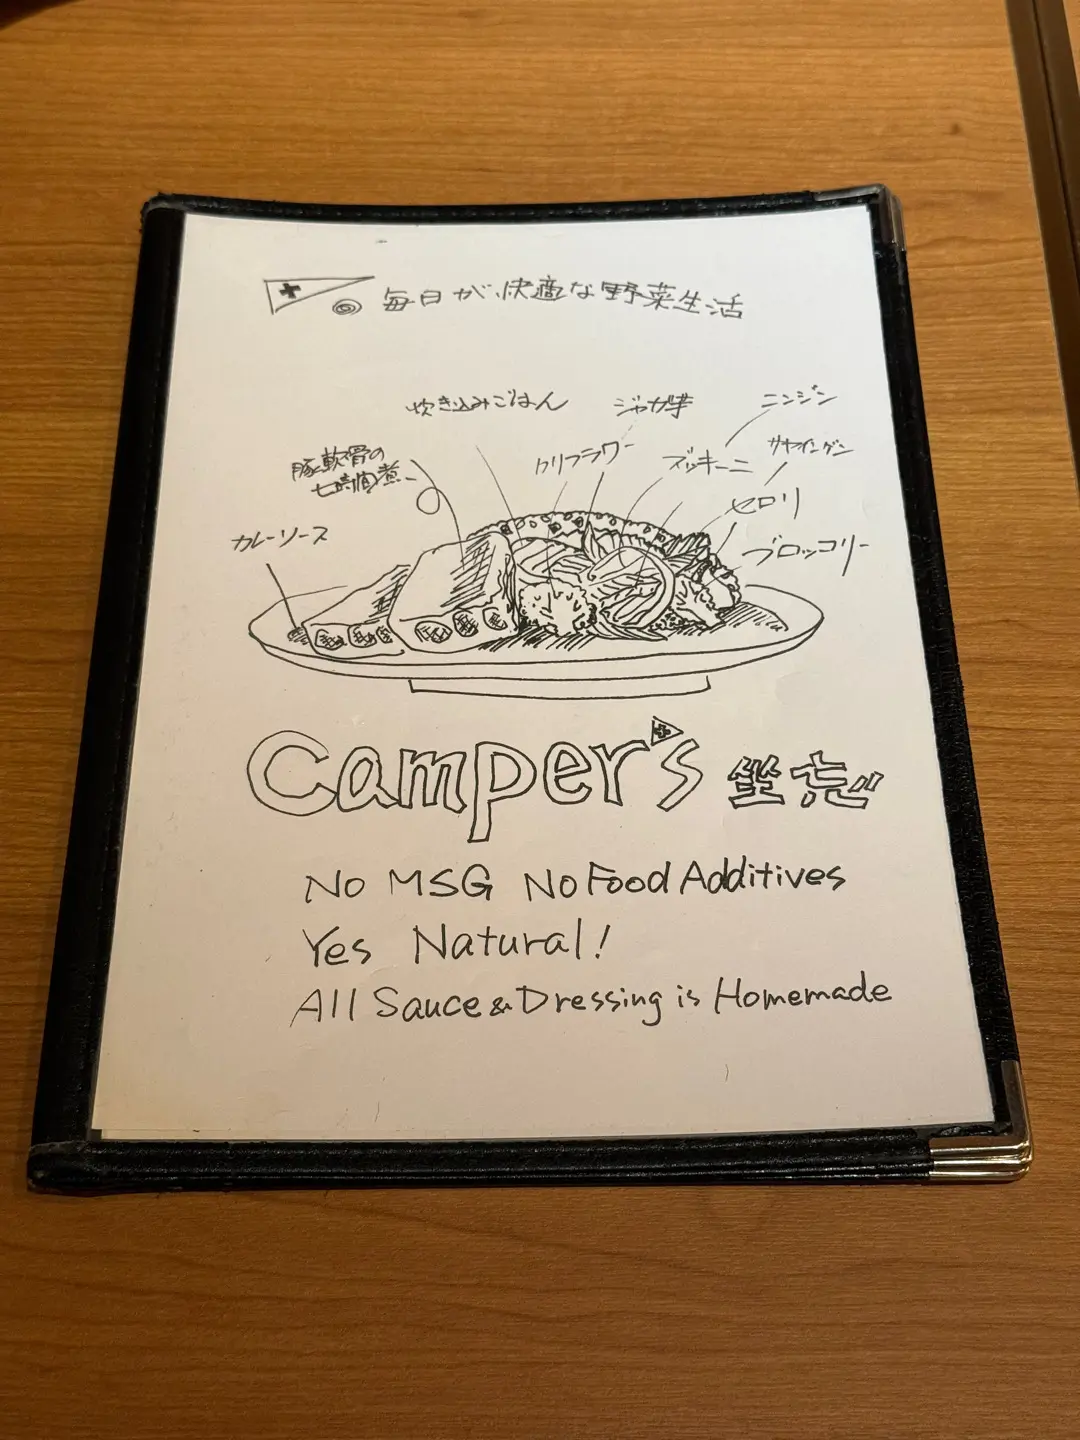 毎日が快適な野菜生活
炊き込みごはん
ジャガ芋
ニンジン
カリフラワー
ズッキーニ
サヤインゲン
豚軟骨の
七時間煮
セロリ
カレーソース
ブロッコリー
Camper's 坐忘
No MSG No Food Additives
Yes Natural!
All Sauce & Dressing is Homemade